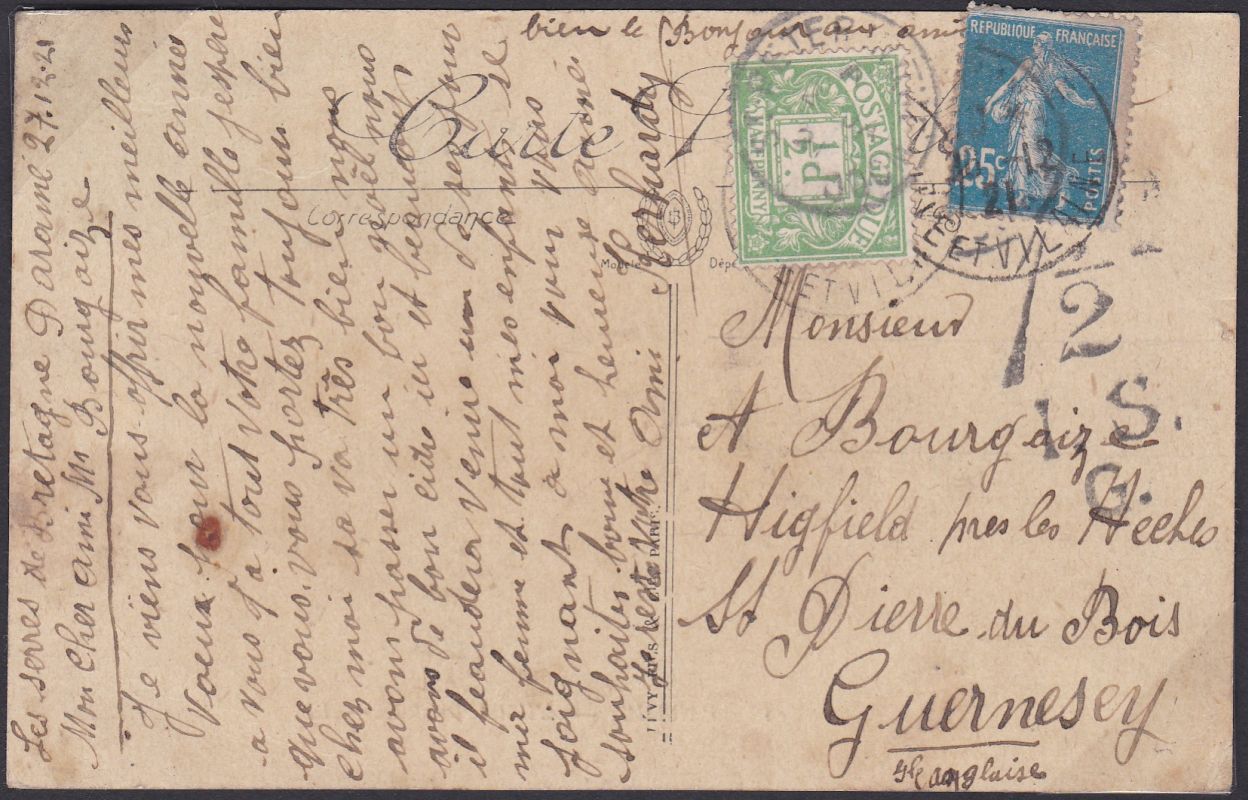 bien le Bonjour aux
Carte
Correspondance
Modèle Dép
REPUBLIQUE FRANÇAISE
25c
POSTES
POSTAGE DUE
½D
HALFPENNY
ILLE ET VILAINE
-12
21
1/2
1 S.
G.
Les serres de Bretagne Parame 27.12.21
Mon cher ami Mr Bourgaize
Je viens vous offrir mes meilleurs
voeux pour la nouvelle année
a vous et a tout votre famille j'espère
que vous vous portez toujours bien
chez moi sa va très bien nous
avons passer un bon
avons de bon cidre ici et beaucoup
il feaudra venir un de ses jour
ma femme et tout mes enfants se
joignant a moi pour vous
souhaites bonne et heureuse année
Je reste votre ami
LEVY FILS PARIS
Monsieur
A Bourgaize
Higfield pres les Heches
St Pierre du Bois
Guernesey
anglaise